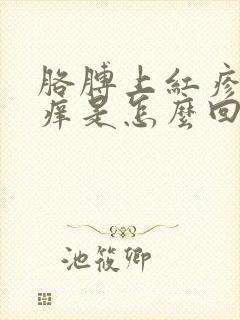 胳膊上紅疹
痒是怎麼回
池筱卿